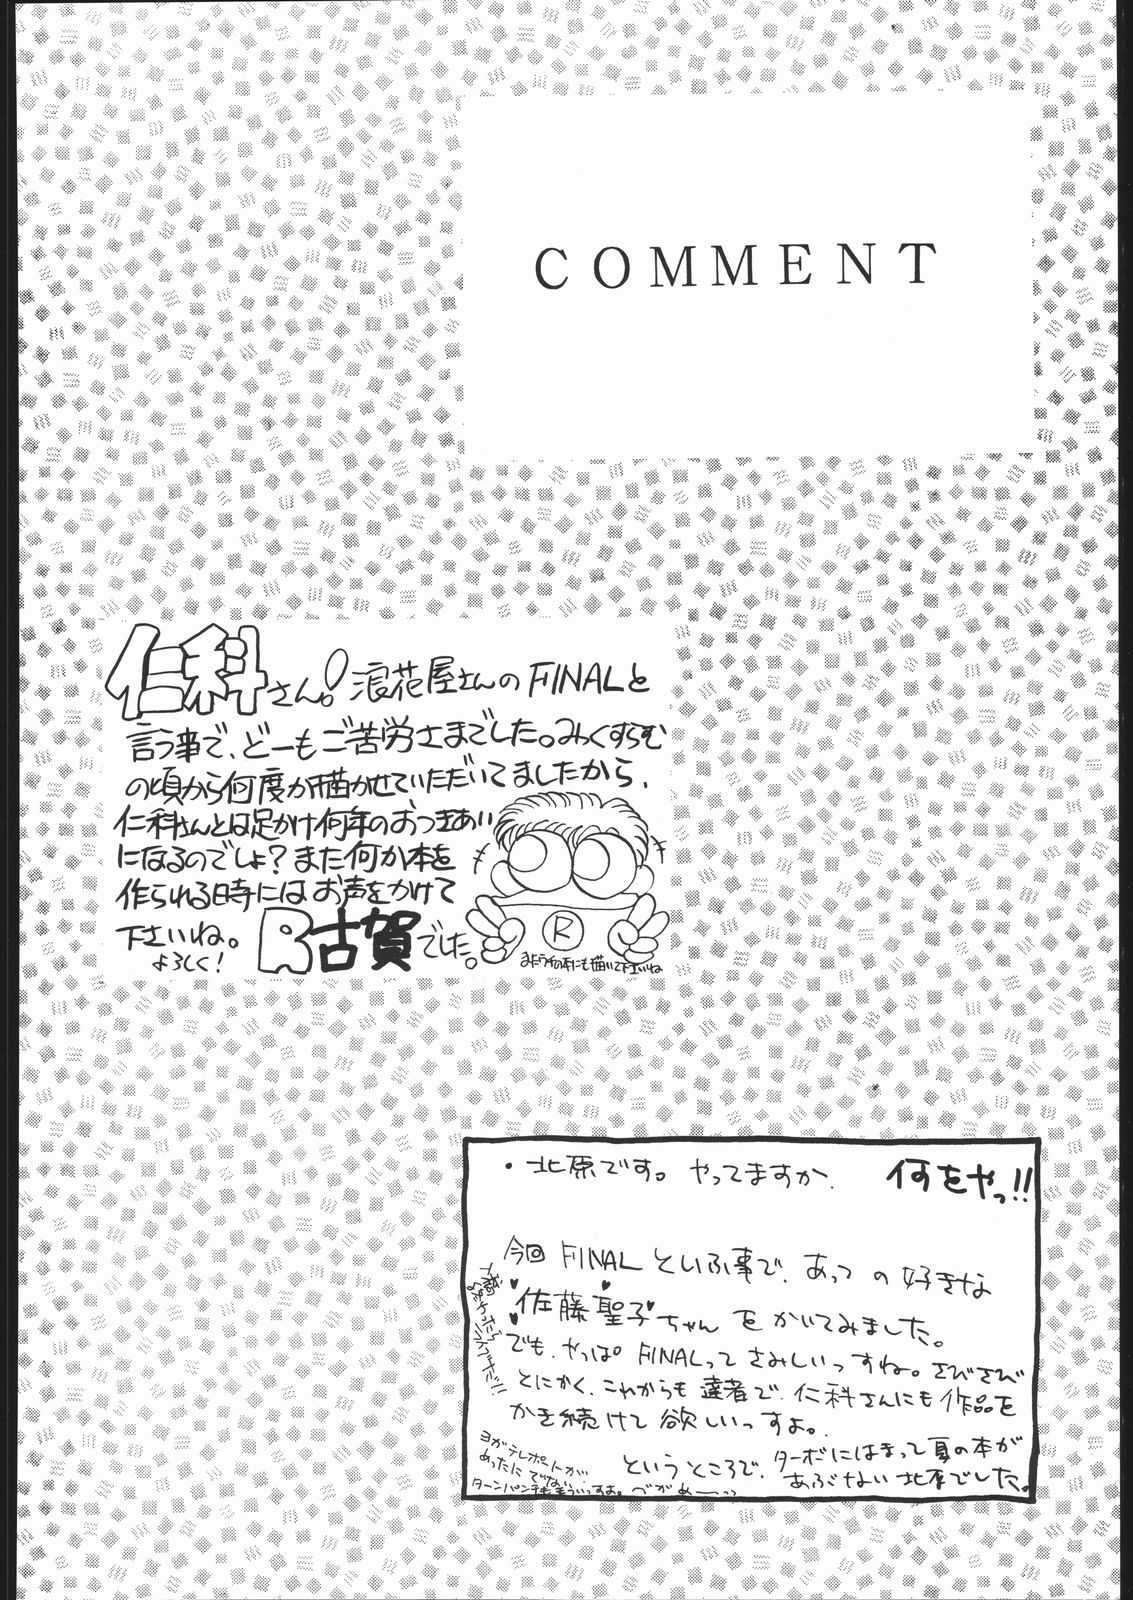 COMMENT
仁科さん! 浪花屋さんのFINALと
言う事で、どーもご苦労さまでした。みっくすらむ
の頃から何度か描かせていただいてましたから、
仁科さんとは足かけ何年のおつきあい
になるのでしょ?また何か本を
作られる時にはお声をかけて
下さいね。R古賀でした。
よろしく!
R
・北原です。やってますか。 何をやっ!!
今回FINALといふ事で、あっつの好きな
佐藤聖子ちゃんをかいてみました。
でも、やっぱFINALってさみしいっすね。さびさび
とにかく、これからも達者で、仁科さんにも作品を
かき続けて欲しいっすよ。
というところで、ターボにはまって夏の本が
あぶない北原でした。
ヨガテレポートが
めったにでない。